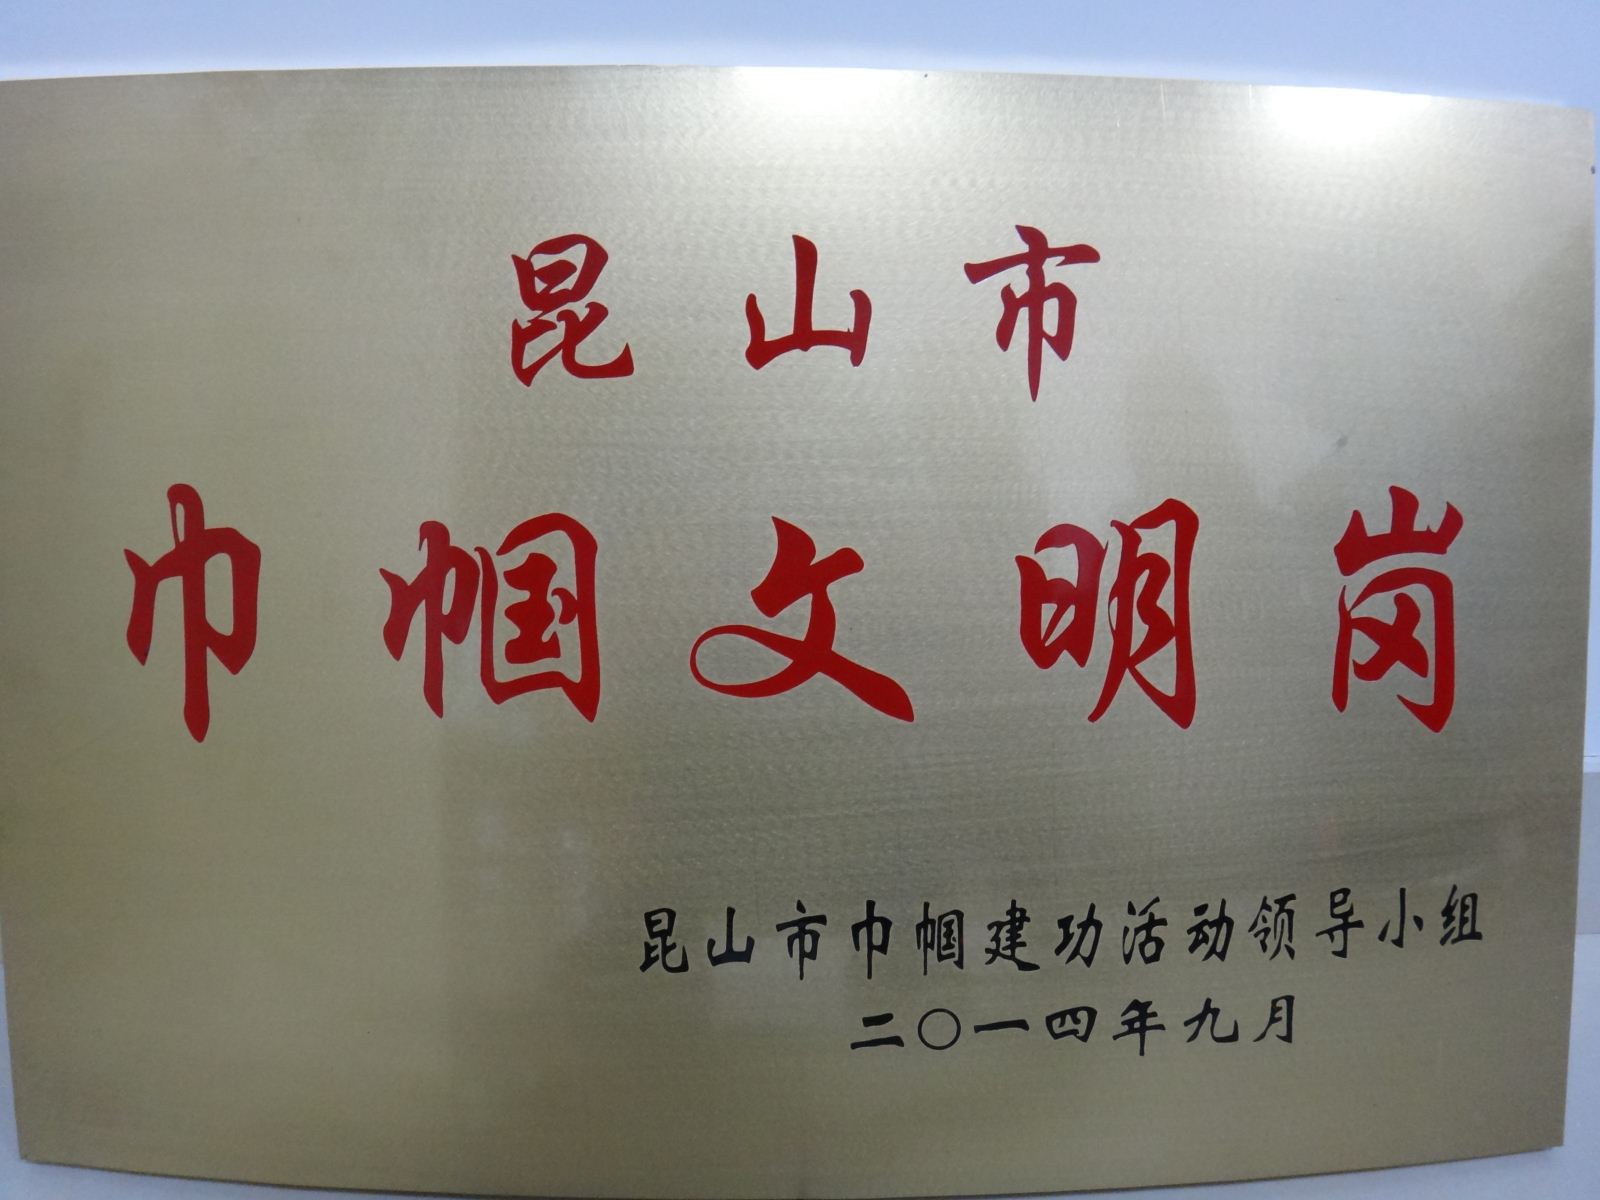 昆山市
巾帼文明岗
昆山市巾帼建功活动领导小组
二〇一四年九月